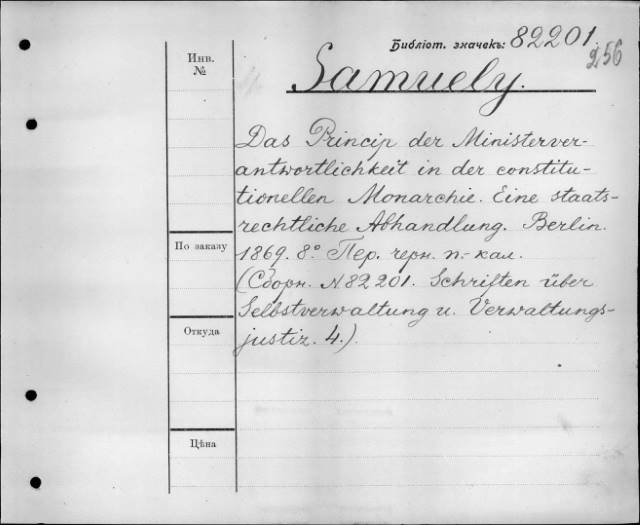 Библіот. значекъ: 82201.
256
Инв.
№
Samuely.
Das Princip der Ministerver-
antwortlichkeit in der constitu-
tionellen Monarchie. Eine staats-
rechtliche Abhandlung. Berlin.
1869. 8º Пер. черн. п.-кал.
(Сборн. N 82201. Schriften über
Selbstverwaltung u. Verwaltungs-
justiz. 4.).
По заказу
Откуда
Цѣна